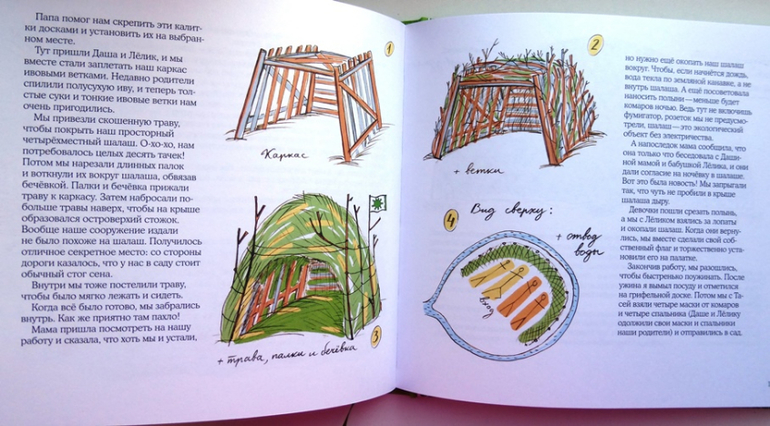 Папа помог нам скрепить эти калит-
ки досками и установить их на выбран-
ном месте.
Тут пришли Даша и Лёлик, и мы
вместе стали заплетать наш каркас
ивовыми ветками. Недавно родители
спилили полусухую иву, и теперь тол-
стые сучки и тонкие ивовые ветки нам
очень пригодились.
Мы привезли скошенную траву,
чтобы покрыть наш просторный
четырёхместный шалаш. О-хо-хо, нам
потребовалось целых десять тачек!
Потом мы нарезали длинных палок
и воткнули их вокруг шалаша, обвязав
бечёвкой. Палки и бечёвка прижали
траву к каркасу. Затем набросали по-
больше травы наверх, чтобы на крыше
образовался островерхий стожок.
Вообще наше сооружение издали
не было похоже на шалаш. Получилось
отличное секретное место: со стороны
дороги казалось, что у нас в саду стоит
обычный стог сена.
Внутри мы тоже постелили траву,
чтобы было мягко лежать и сидеть.
Когда всё было готово, мы забрались
внутрь. Как же приятно там пахло!
Мама пришла посмотреть на нашу
работу и сказала, что хоть мы и устали,
1
Каркас
3
+ трава, палки и бечёвка
2
+ ветки
4
Вид сверху:
+ отвод
воды
вход
но нужно ещё окопать наш шалаш
вокруг. Чтобы, если начнётся дождь,
вода текла по земляной канавке, а не
внутрь шалаша. А ещё посоветовала
наносить полыни — меньше будет
комаров ночью. Ведь тут не включишь
фумигатор, розеток мы не предусмо-
трели, шалаш — это экологический
объект без электричества.
А напоследок мама сообщила, что
она только что беседовала с Даши-
ной мамой и бабушкой Лёлика, и они
дали согласие на ночёвку в шалаше.
Вот это была новость! Мы запрыгали
так, что чуть не пробили в крыше
шалаша дыру.
Девочки пошли срезать полынь,
а мы с Лёликом взялись за лопаты
и окопали шалаш. Когда они верну-
лись, мы вместе сделали свой соб-
ственный флаг и торжественно уста-
новили его на палатке.
Закончив работу, мы разошлись,
чтобы быстренько поужинать. После
ужина я вымыл посуду и отметился
на грифельной доске. Потом мы с Та-
сей взяли четыре маски от комаров
и четыре спальника (Даше и Лёлику
одолжили свои маски и спальники
наши родители) и отправились в сад.